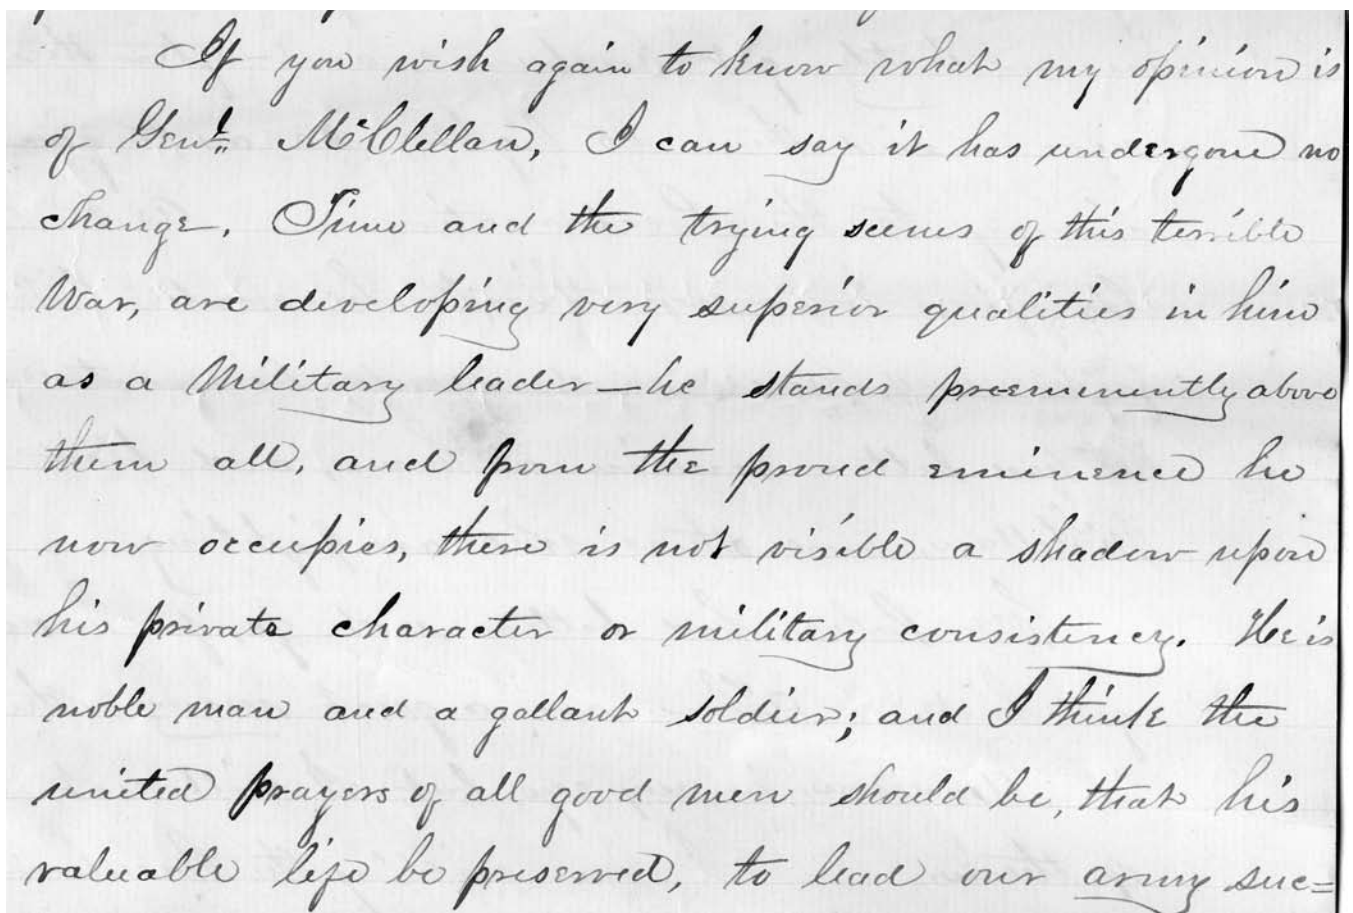 If you wish again to know what my opinion is
of Genl. McClellan, I can say it has undergone no
change. Time and the trying scenes of this terrible
War, are developing very superior qualities in him
as a Military leader—he stands preeminently above
them all, and from the proud eminence he
now occupies, there is not visible a shadow upon
his private character or military consistency. He is
noble man and a gallant soldier; and I think the
united prayers of all good men should be, that his
valuable life be preserved, to lead our army suc=